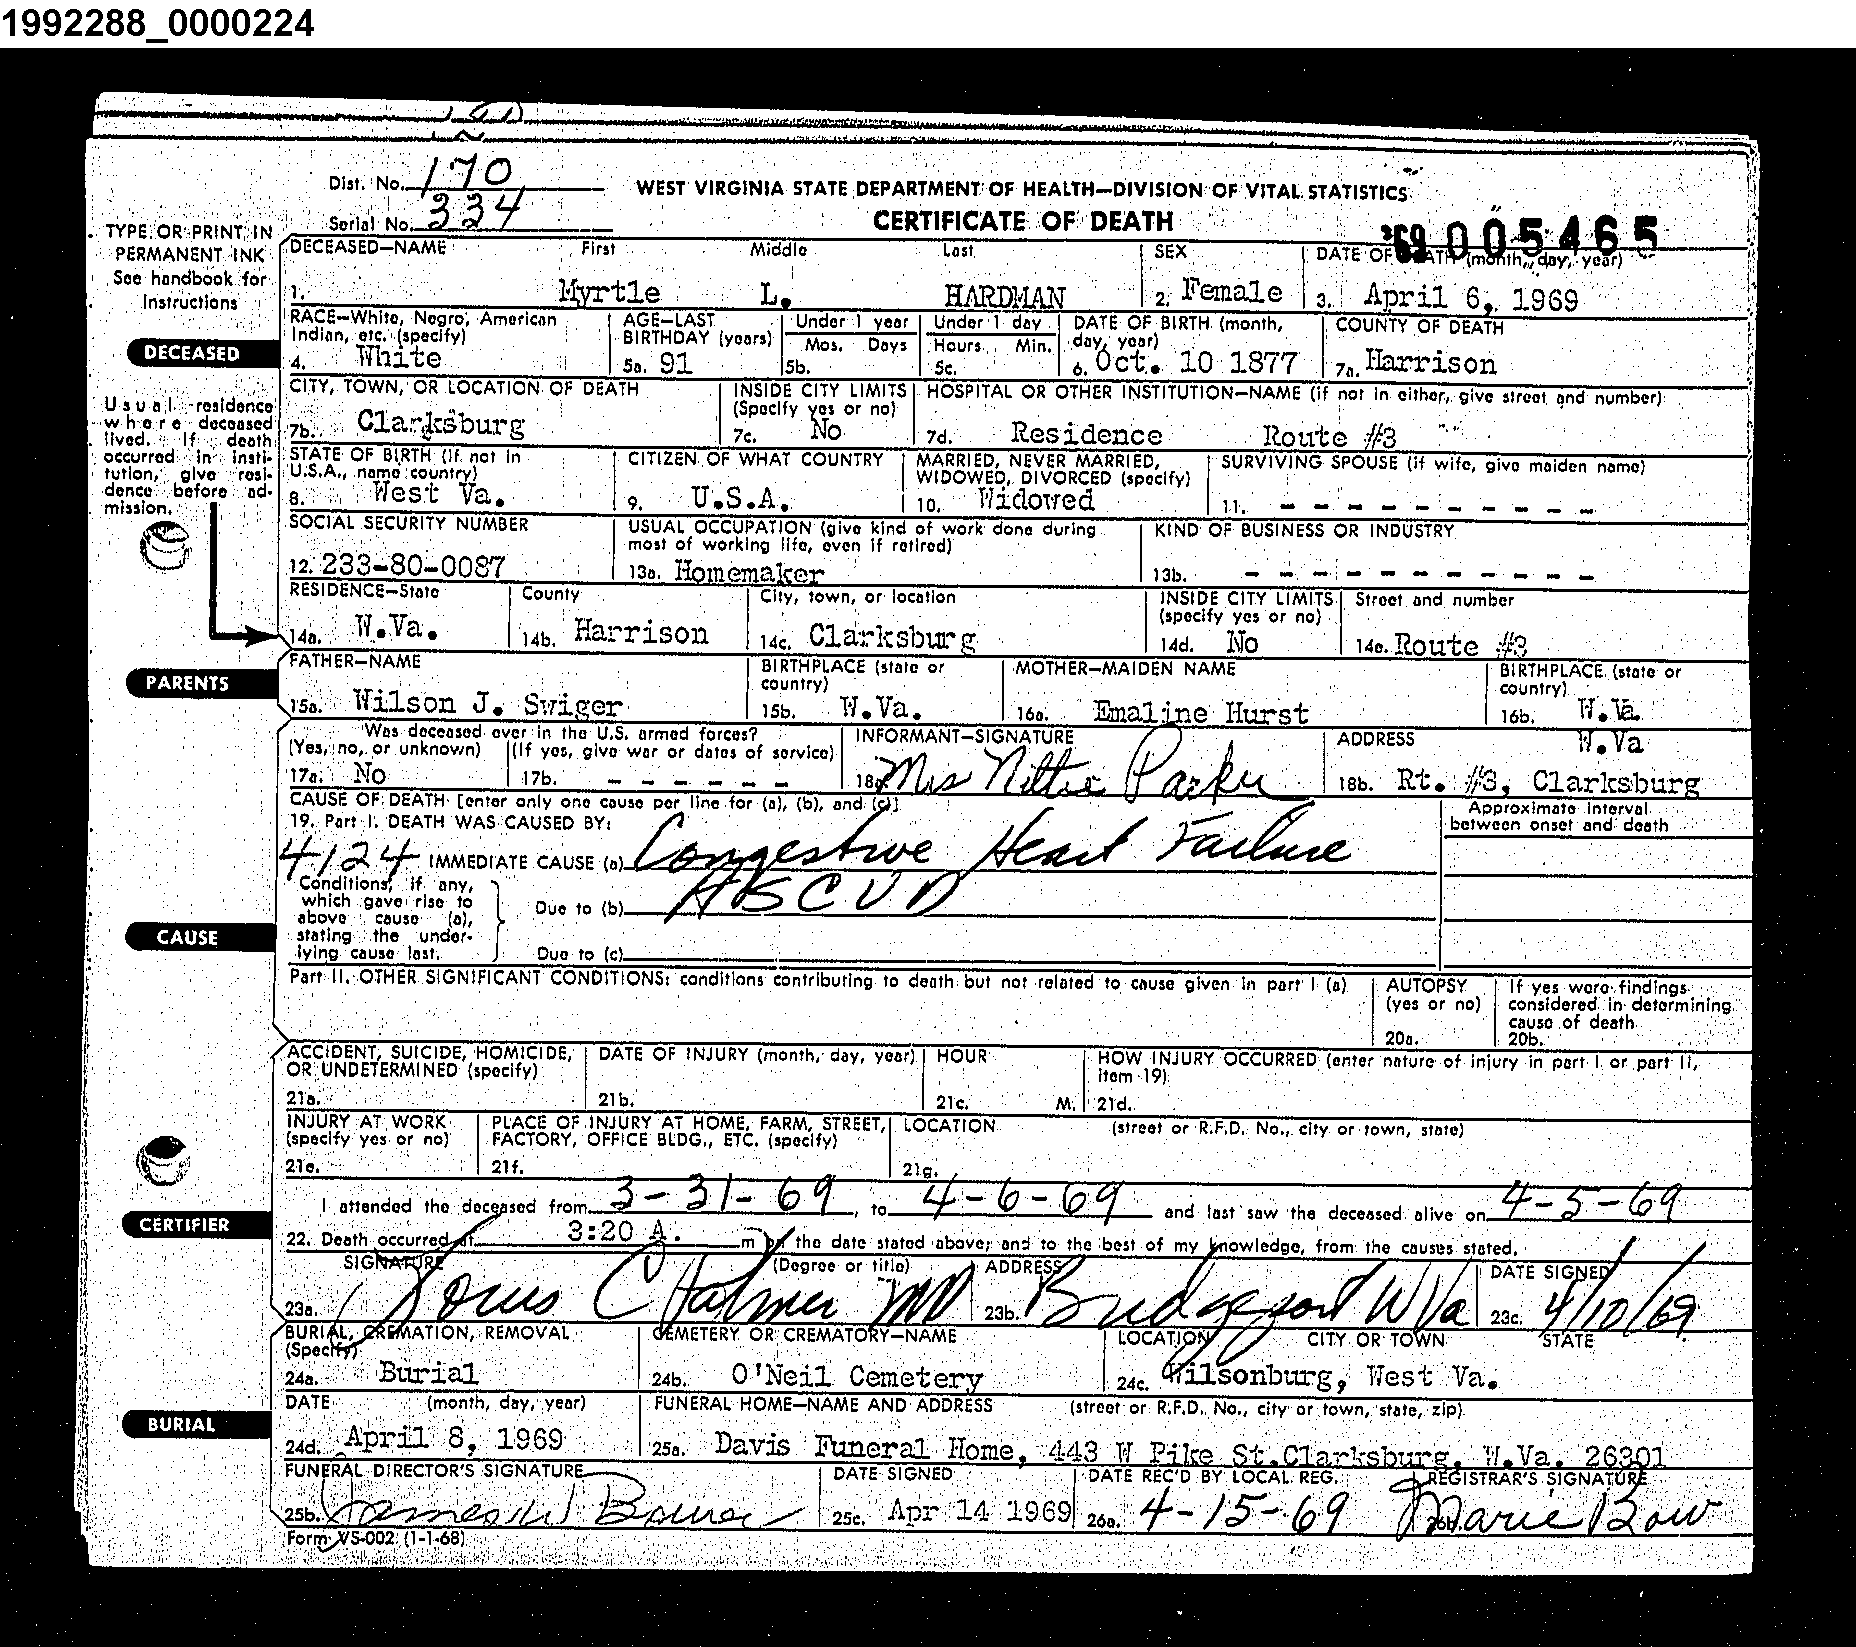 1992288_0000224
Dist. No. 170
WEST VIRGINIA STATE DEPARTMENT OF HEALTH—DIVISION OF VITAL STATISTICS
Serial No. 334
CERTIFICATE OF DEATH
'69 005465
TYPE OR PRINT IN
PERMANENT INK
See handbook for
Instructions
DECEASED—NAME First Middle Last SEX DATE OF DEATH (month, day, year)
1. Myrtle L. HARDMAN 2. Female 3. April 6, 1969
RACE—White, Negro, American AGE—LAST Under 1 year Under 1 day DATE OF BIRTH (month, COUNTY OF DEATH
Indian, etc. (specify) BIRTHDAY (years) Mos. Days Hours Min. day, year)
DECEASED
4. White 5a. 91 5b. 5c. 6. Oct. 10 1877 7a. Harrison
CITY, TOWN, OR LOCATION OF DEATH INSIDE CITY LIMITS HOSPITAL OR OTHER INSTITUTION—NAME (if not in either, give street and number)
(Specify yes or no)
7b. Clarksburg 7c. No 7d. Residence Route #3
Usual residence
where deceased
lived. If death
occurred in insti-
tution, give resi-
dence before ad-
mission.
STATE OF BIRTH (if not in CITIZEN OF WHAT COUNTRY MARRIED, NEVER MARRIED, SURVIVING SPOUSE (if wife, give maiden name)
U.S.A., name country) WIDOWED, DIVORCED (specify)
8. West Va. 9. U.S.A. 10. Widowed 11. - - - - - - - - - -
SOCIAL SECURITY NUMBER USUAL OCCUPATION (give kind of work done during KIND OF BUSINESS OR INDUSTRY
most of working life, even if retired)
12. 233-80-0087 13a. Homemaker 13b. - - - - - - - - - - -
RESIDENCE—State County City, town, or location INSIDE CITY LIMITS Street and number
(specify yes or no)
14a. W.Va. 14b. Harrison 14c. Clarksburg 14d. No 14e. Route #3
FATHER—NAME BIRTHPLACE (state or MOTHER—MAIDEN NAME BIRTHPLACE (state or
country) country)
PARENTS
15a. Wilson J. Swiger 15b. W.Va. 16a. Emaline Hurst 16b. W.Va.
Was deceased ever in the U.S. armed forces? INFORMANT—SIGNATURE ADDRESS W.Va
(Yes, no, or unknown) (If yes, give war or dates of service)
17a. No 17b. - - - - - - 18a. Mrs Nettie Parker 18b. Rt. #3, Clarksburg
CAUSE OF DEATH [enter only one cause per line for (a), (b), and (c)] Approximate interval
19. Part I. DEATH WAS CAUSED BY: between onset and death
4124 IMMEDIATE CAUSE (a) Congestive Heart Failure
Conditions, if any,
which gave rise to
above cause (a),
stating the under-
lying cause last.
Due to (b) ASCVD
CAUSE
Due to (c)
Part II. OTHER SIGNIFICANT CONDITIONS: conditions contributing to death but not related to cause given in part I (a) AUTOPSY If yes were findings
(yes or no) considered in determining
cause of death
20a. 20b.
ACCIDENT, SUICIDE, HOMICIDE, DATE OF INJURY (month, day, year) HOUR HOW INJURY OCCURRED (enter nature of injury in part I or part II,
OR UNDETERMINED (specify) item 19)
21a. 21b. 21c. M. 21d.
INJURY AT WORK PLACE OF INJURY AT HOME, FARM, STREET, LOCATION (street or R.F.D. No., city or town, state)
(specify yes or no) FACTORY, OFFICE BLDG., ETC. (specify)
21e. 21f. 21g.
I attended the deceased from 3-31-69, to 4-6-69 and last saw the deceased alive on 4-5-69
CERTIFIER
22. Death occurred at 3:20 A. m on the date stated above; and to the best of my knowledge, from the causes stated.
SIGNATURE (Degree or title) ADDRESS DATE SIGNED
23a. MD 23b. Bridgeport W Va 23c. 4/10/69
BURIAL, CREMATION, REMOVAL CEMETERY OR CREMATORY—NAME LOCATION CITY OR TOWN STATE
(Specify)
24a. Burial 24b. O'Neil Cemetery 24c. Wilsonburg, West Va.
DATE (month, day, year) FUNERAL HOME—NAME AND ADDRESS (street or R.F.D. No., city or town, state, zip)
BURIAL
24d. April 8, 1969 25a. Davis Funeral Home, 443 W Pike St.Clarksburg, W.Va. 26301
FUNERAL DIRECTOR'S SIGNATURE DATE SIGNED DATE REC'D BY LOCAL REG. REGISTRAR'S SIGNATURE
25b. James W Bower 25c. Apr 14 1969 26a. 4-15-69 26b. Marie Bow
Form VS-002 (1-1-68)